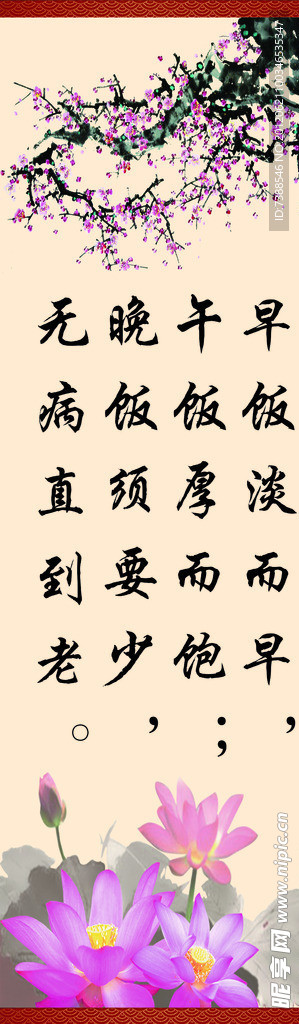 早饭淡而早，
午饭厚而饱；
晚饭须要少，
无病直到老。
昵享网 www.nipic.cn